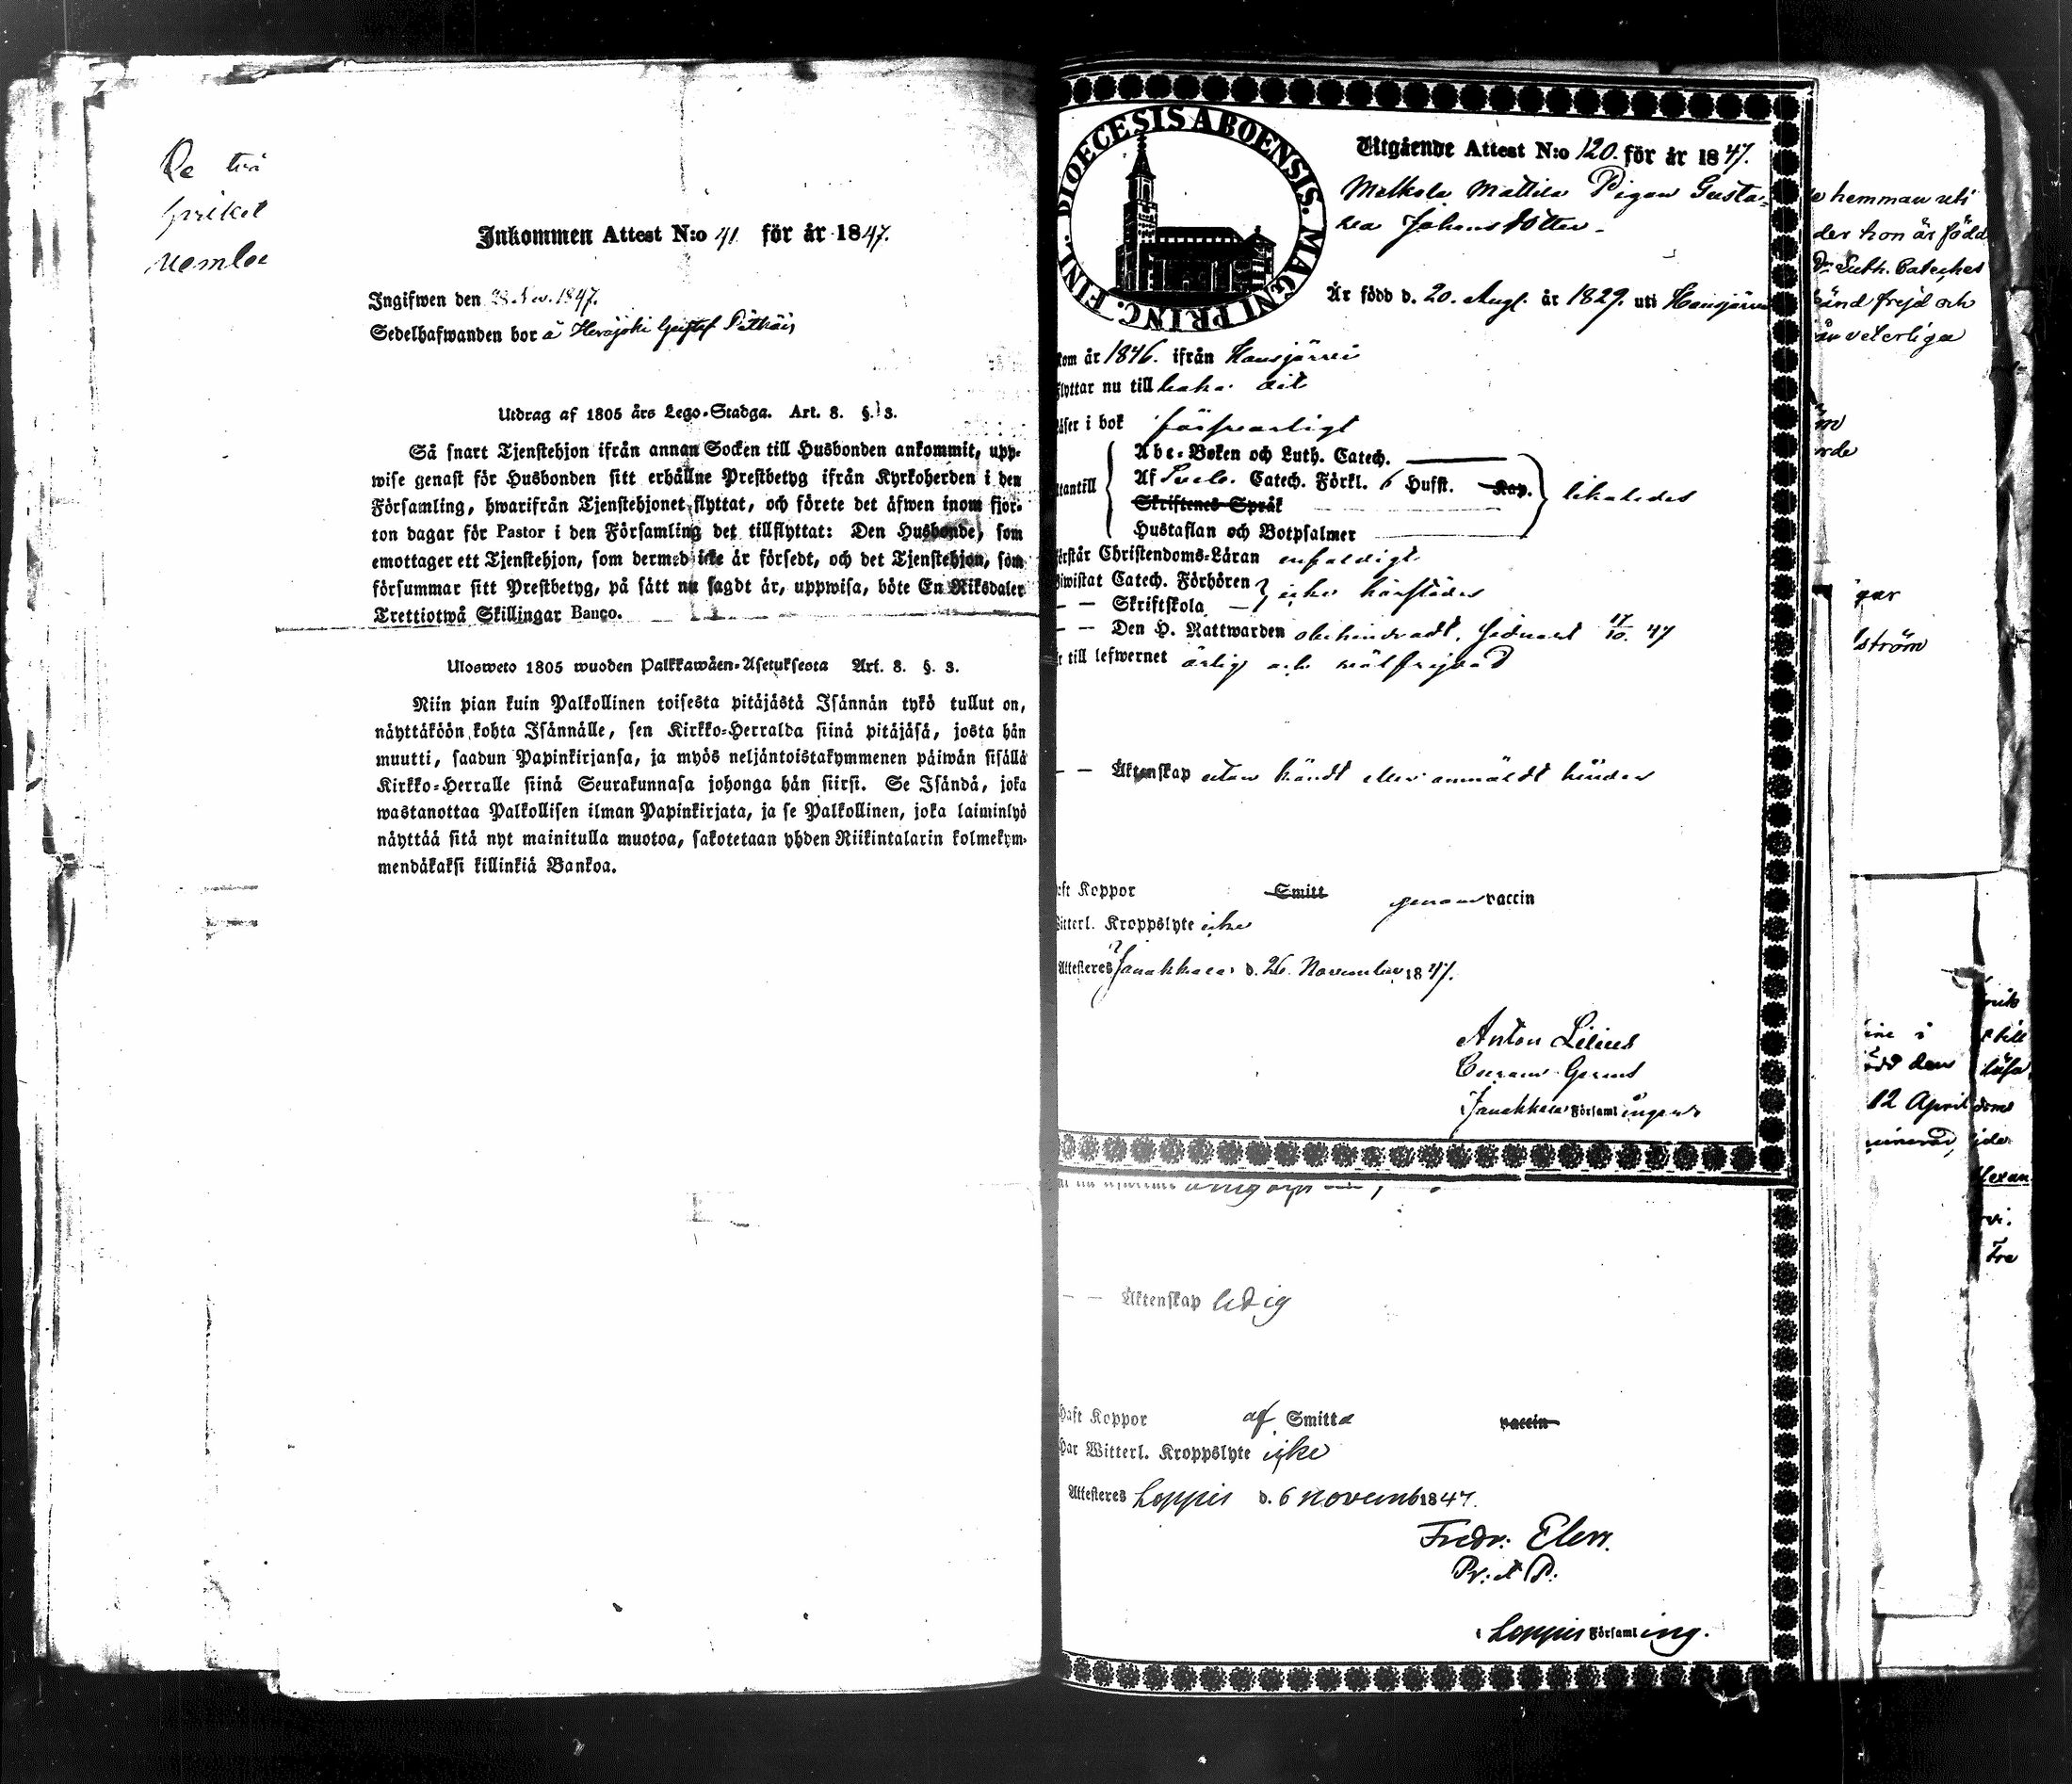 De två
Inkommen Attest N:o 41 för år 1847.
Ingifwen den 28 Nov. 1847.
Sedelhafwanden bor å Herajoki Gustaf
Utdrag af 1805 års Lego-Stadga. Art. 8. §. 3.
Så snart Tjenstehjon ifrån annan Socken till Husbonden ankommit, upp-
wise genast för Husbonden sitt erhållne Prestbetyg ifrån Kyrkoherden i den
Församling, hwarifrån Tjenstehjonet flyttat, och förete det äfwen inom fjor-
ton dagar för Pastor i den Församling det tillflyttat: Den Husbonde, som
emottager ett Tjenstehjon, som dermed icke är försedt, och det Tjenstehjon, som
försummar sitt Prestbetyg, på sätt nu sagdt är, uppwisa, böte En Riksdaler
Trettiotwå Skillingar Banco.
Ulosweto 1805 wuoden Palkkawäen-Asetuksesta Art. 8. §. 3.
Niin pian kuin Palkollinen toisesta pitäjästä Isännän tykö tullut on,
näyttäköön kohta Isännälle, sen Kirkko-Herralda siinä pitäjäsä, josta hän
muutti, saadun Papinkirjansa, ja myös neljäntoistakymmenen päiwän sisällä
Kirkko-Herralle siinä Seurakunnasa johonga hän siirsi. Se Isändä, joka
wastanottaa Palkollisen ilman Papinkirjata, ja se Palkollinen, joka laiminlyö
näyttää sitä nyt mainitulla muotoa, sakotetaan yhden Riikintalarin kolmekym-
mendäkaksi killinkiä Bankoa.
DIOECESIS ABOENSIS. MAGNI PRINC. FINL.
Utgående Attest N:o 120. för år 1847.
Mattila Pigan Gusta-
va Johans dotter
Är född d. 20. Aug. år 1829. uti Hausjärvi
kom år 1846. ifrån Hausjärvi
flyttar nu till baka dit
läser i bok försvarligt
Utantill Abc-Boken och Luth. Catech.
Af Sveb. Catech. Förkl. 6 Hufst. Kap.
Skriftenes Språk
likaledes
Hustaflan och Botpsalmer
förstår Christendoms-Läran enfaldigt
Biwistat Catech. Förhören
— — Skriftskola
icke härstädes
— — Den H. Nattwarden obehindradt, sednast 17/10. 47
till lefwernet ärlig och wälfrejdad
— — Äktenskap utan kändt eller anmäldt hinder
haft Koppor Smitt genom vaccin
Witterl. Kroppslyte icke
Attesteres Janakkala d. 26. November 1847.
Anton Lilius
Curam Gerens
Janakkala Församlingen
— — Äktenskap ledig
Haft Koppor af Smitta vaccin
Har Witterl. Kroppslyte icke
Attesteres Loppis d. 6 novemb 1847.
Fredr: Elers.
Pr: et P:
i Loppis Församling.
hemman uti
der hon är född
Luth. Cateches
känd frejd och
veterliga
ström
12 April